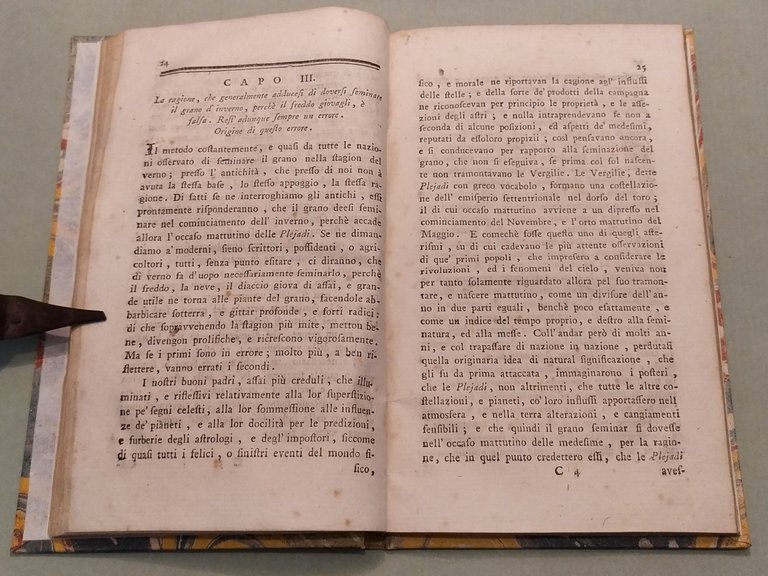 24
CAPO III.
La ragione, che generalmente adducesi di doversi seminare
il grano d'inverno, perchè il freddo giovagli, è
falsa. Resi adunque sempre un errore.
Origine di questo errore.
Il metodo costantemente, e quasi da tutte le nazio-
ni osservato di seminare il grano nella stagion del
verno; presso l'antichità, che presso di noi non à
avuta la stessa base, lo stesso appoggio, la stessa ra-
gione. Di fatti se ne interroghiamo gli antichi, essi
prontamente risponderanno, che il grano deesi semi-
nare nel cominciamento dell'inverno, perchè accade
allora l'occaso mattutino delle Plejadi. Se ne diman-
diamo a' moderni, sieno scrittori, possidenti, o agri-
coltori, tutti, senza punto esitare, ci diranno, che
di verno fa d'uopo necessariamente seminarlo, perchè
il freddo, la neve, il diaccio giova di assai, e gran-
de utile ne torna alle piante del grano, facendole ab-
barbicare sotterra, e gittar profonde, e forti radici;
di che sopravvenendo la stagion più mite, metton be-
ne, divengon prolifiche, e ricrescono vigorosamente.
Ma se i primi sono in errore; molto più, a ben ri-
flettere, vanno errati i secondi.
I nostri buoni padri, assai più creduli, che illu-
minati, e riflessivi relativamente alla lor superstizio-
ne pe' segni celesti, alla lor sommessione alle influen-
ze de' pianeti, e alla lor docilità per le predizioni,
e furberie degli astrologi, e degl'impostori, siccome
di quasi tutti i felici, o sinistri eventi del mondo fi-
sico,
25
sico, e morale ne riportavan la cagione agl'influssi
delle stelle; e della sorte de' prodotti della campagna
ne riconoscevan per principio le proprietà, e le asse-
zioni degli astri; e nulla intraprendevano se non a
seconda di alcune posizioni, ed aspetti de' medesimi,
reputati da essoloro propizii; così pensavano ancora,
e si conducevano per rapporto alla seminazione del
grano, che non si eseguiva, se prima col sol nascen-
te non tramontavano le Vergilie. Le Vergilie, dette
Plejadi con greco vocabolo, formano una costellazio-
ne dell'emisperio settentrionale nel dorso del toro;
il di cui occaso mattutino avviene a un dipresso nel
cominciamento del Novembre, e l'orto mattutino del
Maggio. E comechè fosse questo uno di quegli aste-
rismi, su di cui cadevano le più attente osservazioni
di que' primi popoli, che impresero a considerare le
rivoluzioni, ed i fenomeni del cielo, veniva non
per tanto solamente riguardato allora pel suo tramon-
tare, e nascere mattutino, come un divisore dell'an-
no in due parti eguali, benchè poco esattamente, e
come un indice del tempo proprio, e destro alla semi-
natura, ed alla messe. Coll'andar però di molti an-
ni, e col trapassare di nazione in nazione, perdutasi
quella originaria idea di natural significazione, che
gli fu da prima attaccata, immaginarono i posteri,
che le Plejadi, non altrimenti, che tutte le altre co-
stellazioni, e pianeti, co' loro influssi apportassero nell'
atmosfera, e nella terra alterazioni, e cangiamenti
sensibili; e che quindi il grano seminar si dovesse
nell'occaso mattutino delle medesime, per la ragio-
ne, che in quel punto credettero essi, che le Plejadi
C 4
aves-